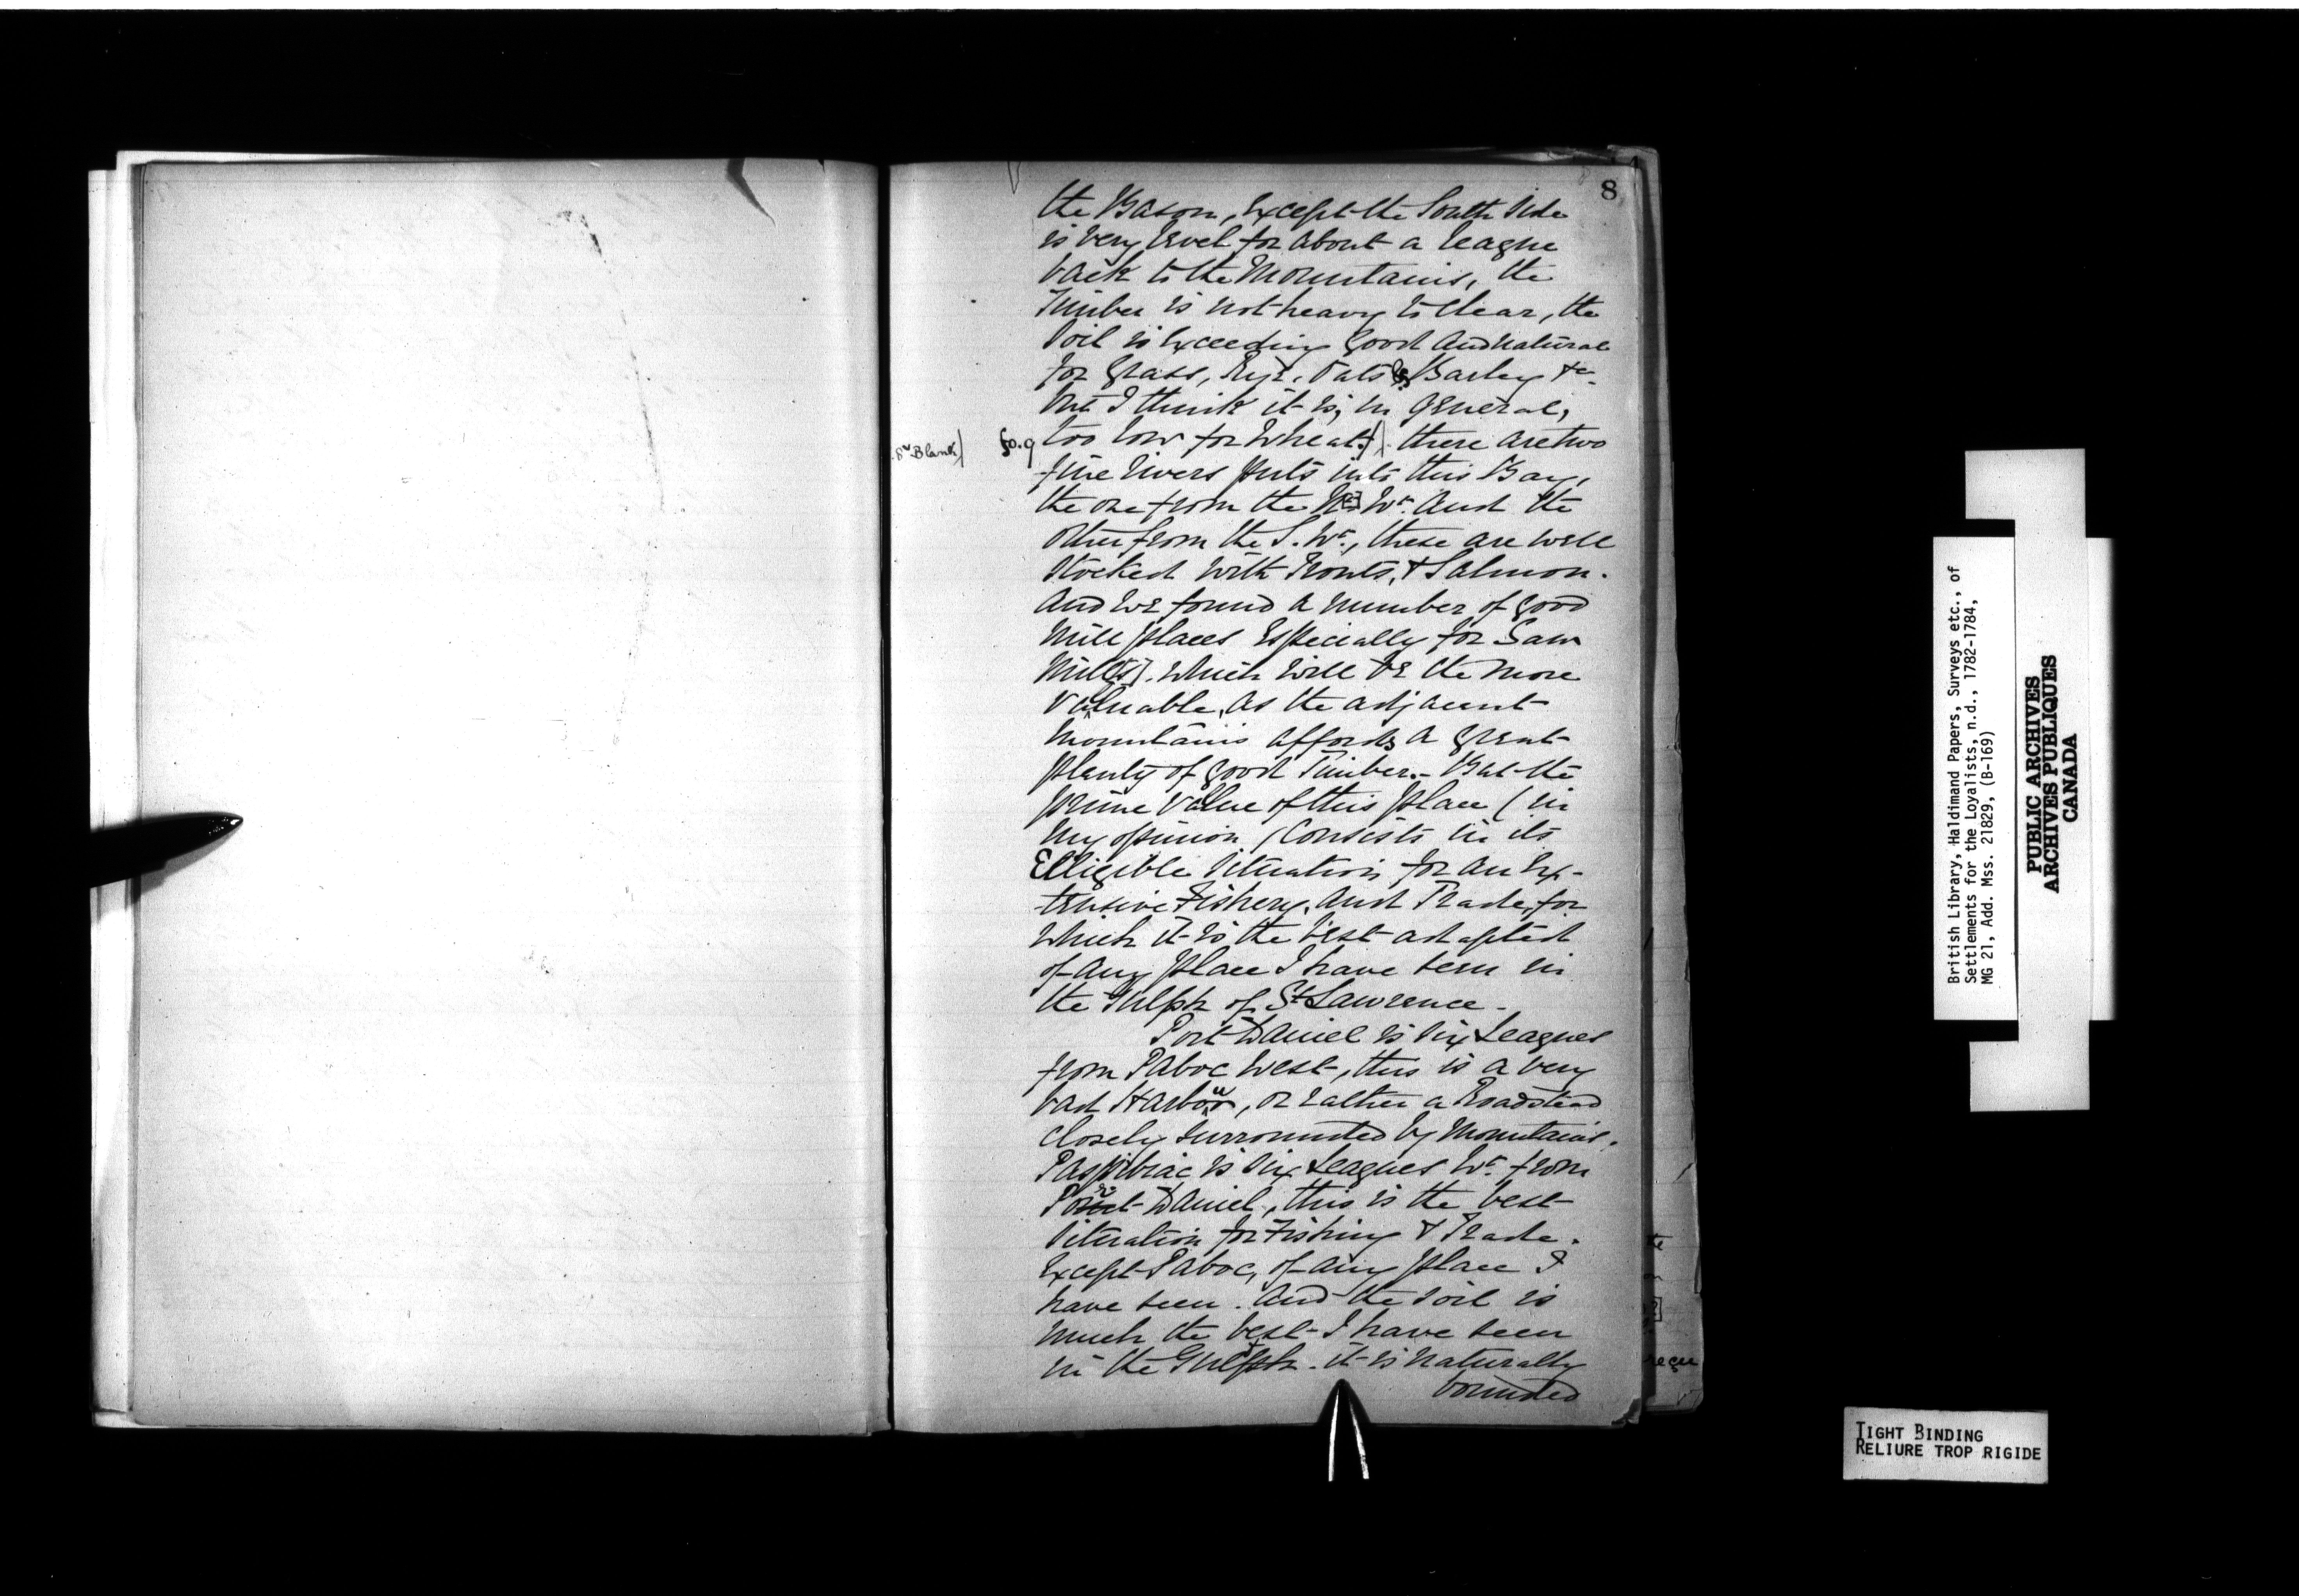 8
the Bason, Except the South Side
is very level for about a league
back to the Mountains, the
Timber is not heavy to Clear, the
Soil is Exceeding good and natural
for Grass, Rye, Oats & Barley &c.
but I think it is, in general,
8v Blank) fo. 9 too low for Wheat.) there are two
fine Rivers puts into this Bay,
the one from the N. Wt. and the
other from the S. Wt., these are well
Stocked with Trouts, & Salmon.
And we found a number of good
Mill places Especially for Saw
Mill[s]. Which will be the more
Valuable, as the adjacent
mountains affords a great
plenty of good Timber. - But the
prime Value of this place (in
my opinion (Consists in its
Elligible Situation for an Ex-
-tensive Fishery, and Trade, for
which it is the best adapted
of any place I have seen in
the Gulph of St Lawrence -
Port Daniel is Six Leagues
from Paboc West, this is a very
bad Harbour, or rather a Roadstead
Closely surrounded by Mountains.
Paspibiac is Six Leagues Wt. from
Port Daniel, this is the best
Situation for Fishing & Trade.
Except Paboc, of any place I
have seen. And the soil is
much the best I have seen
in the Gulph. it is naturally
bounded
British Library, Haldimand Papers, Surveys etc., of
Settlements for the Loyalists, n.d., 1782-1784,
MG 21, Add. Mss. 21829, (B-169)
PUBLIC ARCHIVES
ARCHIVES PUBLIQUES
CANADA
TIGHT BINDING
RELIURE TROP RIGIDE